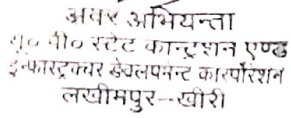 अवर अभियन्ता
यू० पी० स्टेट कान्ट्रशन एण्ड
इन्फास्ट्रक्चर डेवलपमेन्ट कारपोरेशन
लखीमपुर--खीरी